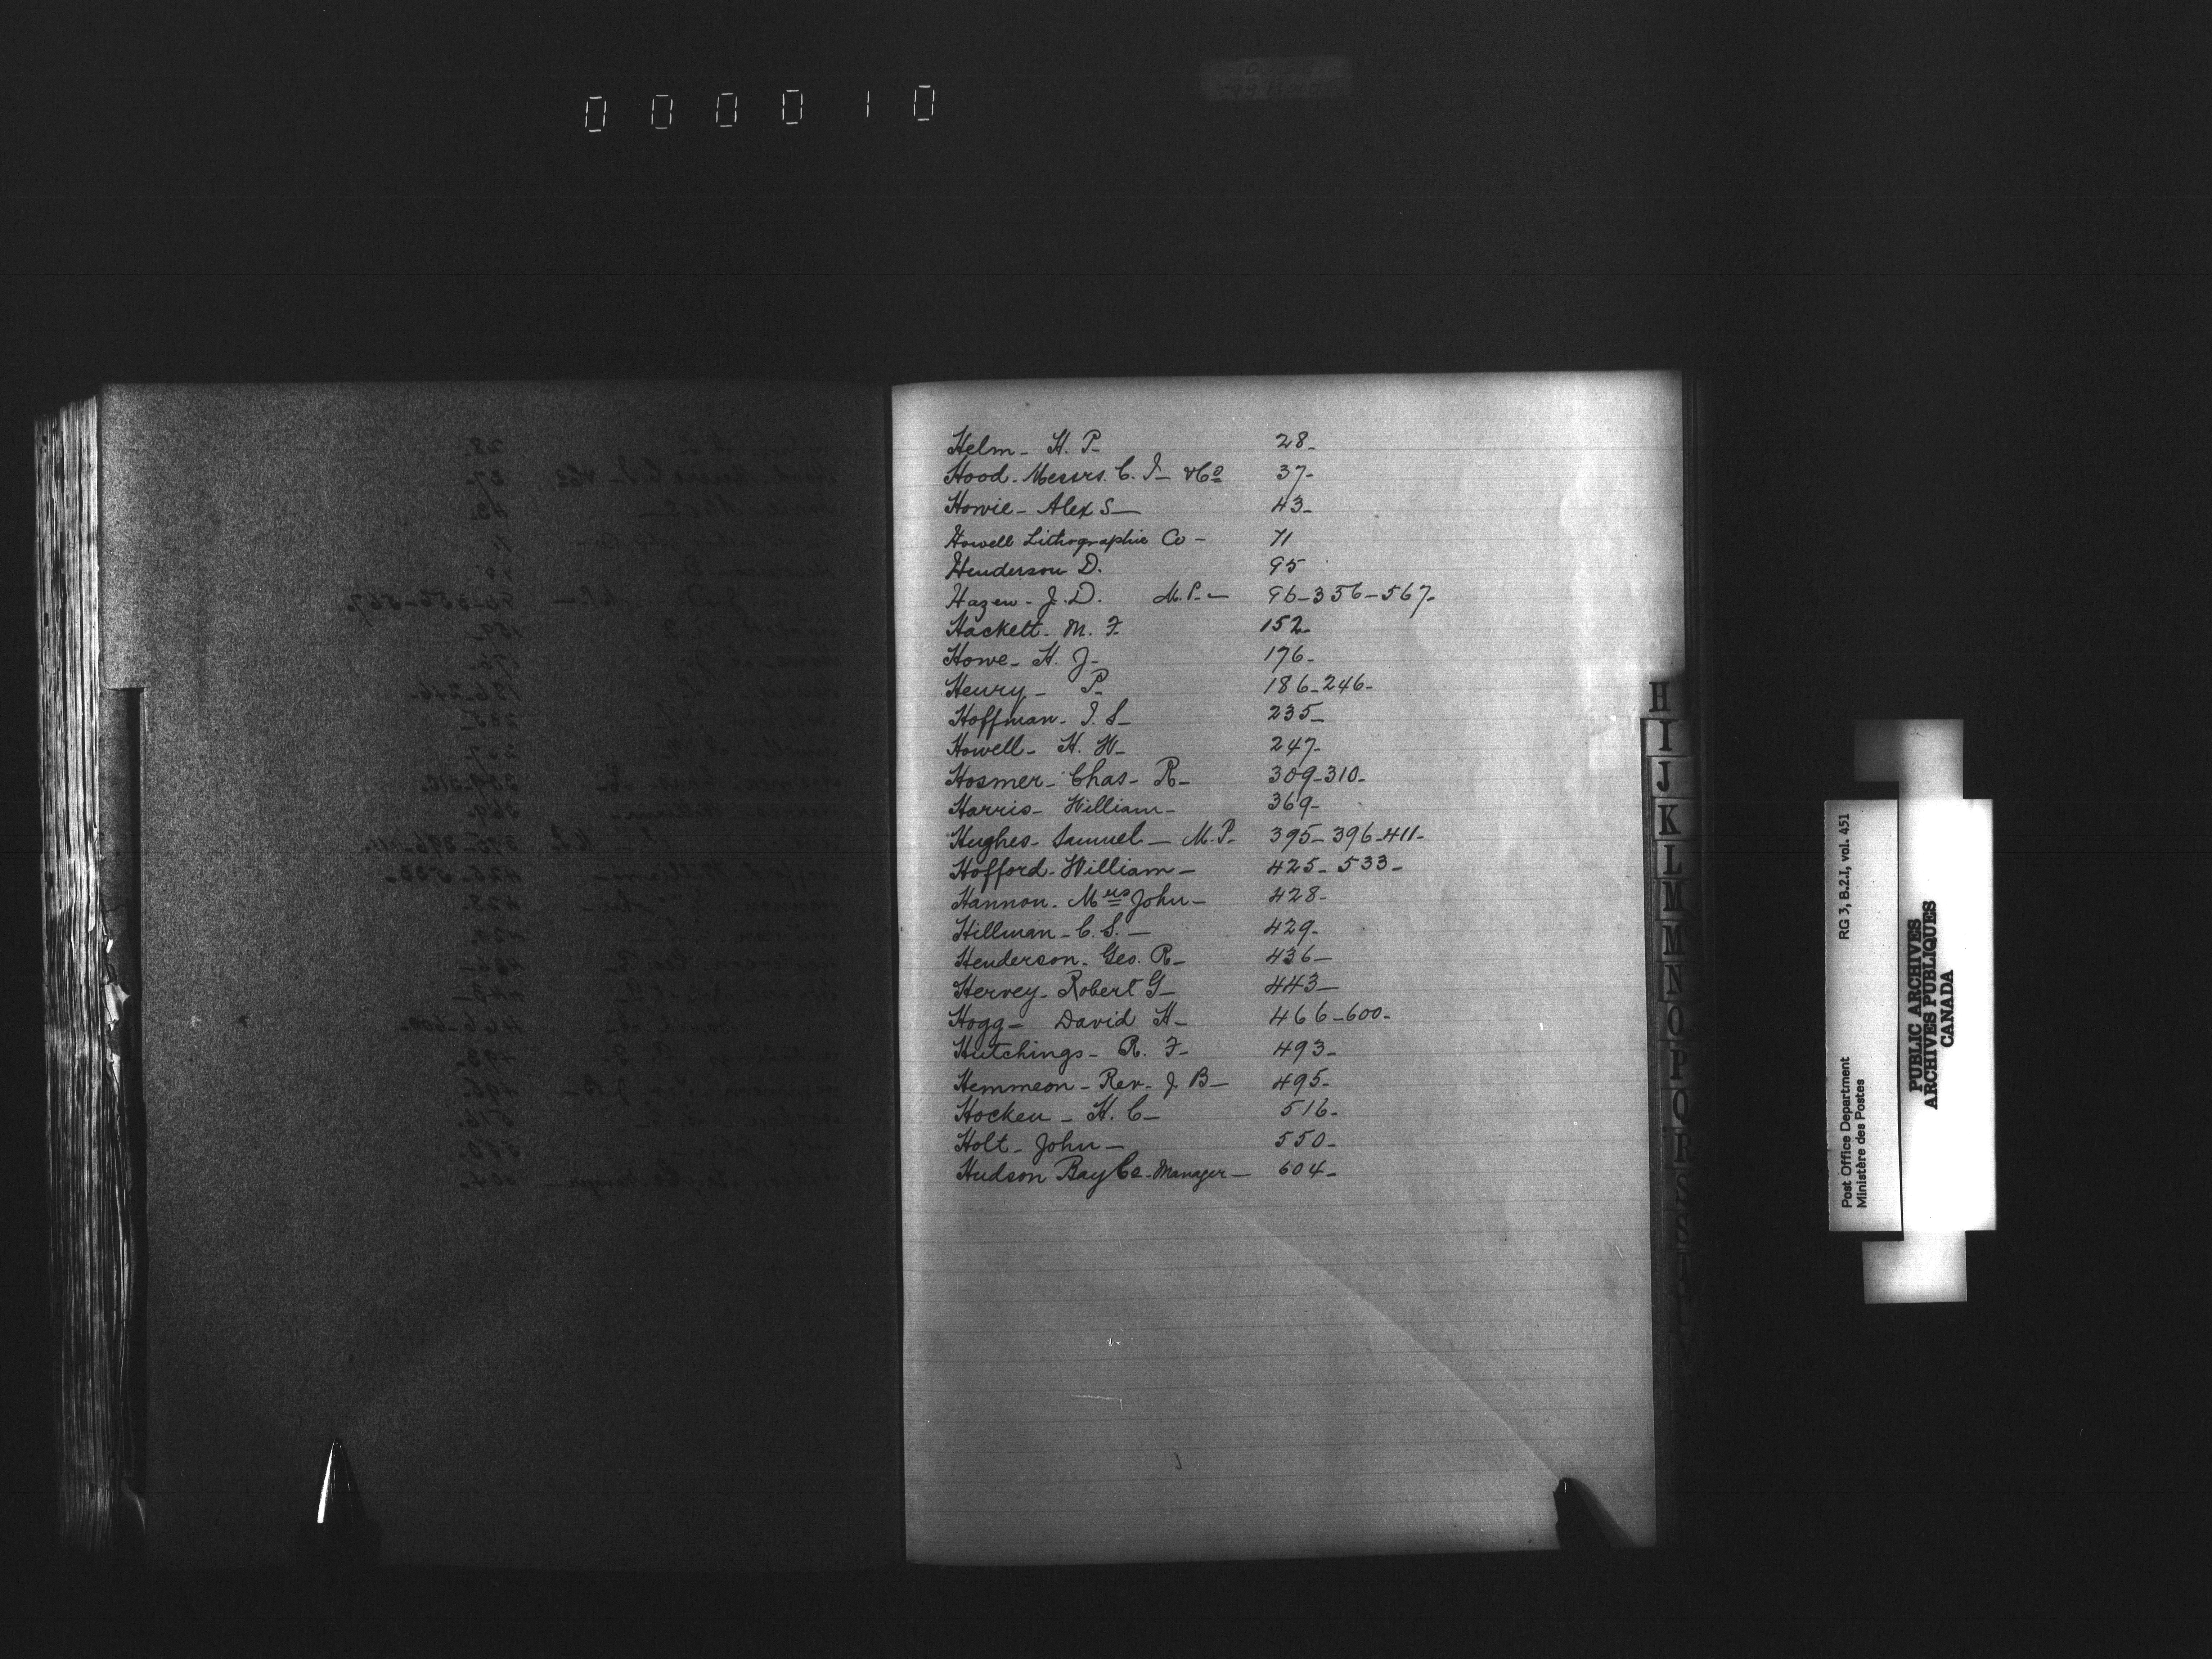 000010
Helm - H. P. 28 -
Hood - Messrs. C. I. - & Co 37 -
Howie - Alex S - 43 -
Howell Lithographic Co - 71
Henderson D. 95
Hazen - J. D. M.P. - 96 - 356 - 567 -
Hackett - M. F. 152 -
Howe - H. J - 176 -
Henry - P - 186 - 246 -
Hoffman - I. S - 235 -
Howell - H. W - 247 -
Hosmer - Chas - R - 309 - 310 -
Harris - William - 369 -
Hughes - Samuel - M.P. 395 - 396 - 411 -
Hofford - William - 425 - 533 -
Hannon - Mrs John - 428 -
Hillman - C. S. - 429 -
Henderson - Geo. R - 436 -
Hervey - Robert G - 443 -
Hogg - David H - 466 - 600 -
Hutchings - R. F - 493 -
Hemmeon - Rev - J. B - 495 -
Hocken - H. C - 516 -
Holt - John - 550 -
Hudson Bay Co - Manager - 604 -
H
I
J
K
L
M
M
N
O
P
Q
R
S
Post Office Department RG 3, B.2.I, vol. 451
Ministère des Postes
PUBLIC ARCHIVES
ARCHIVES PUBLIQUES
CANADA